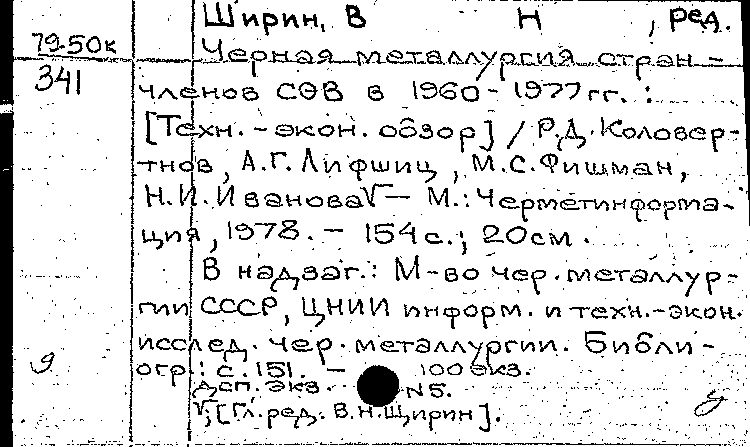 Ширин, В Н , ред.
79-50к
Черная металлургия стран -
341
членов СЭВ в 1960-1977 гг. :
[Техн. - экон. обзор] / Р.Д. Коловер-
тнов, А.Г. Лифшиц, М.С. Фишман,
Н.И. Иванова √ — М.: Черметинформа-
ция, 1978. - 154 с.; 20 см.
В надзаг.: М-во чер. металлур-
гии СССР, ЦНИИ информ. и техн.-экон.
исслед. чер. металлургии. Библи-
огр.: с. 151. - 100 экз.
дсп. экз. N 5.
√; [Гл. ред. В.Н. Щирин].